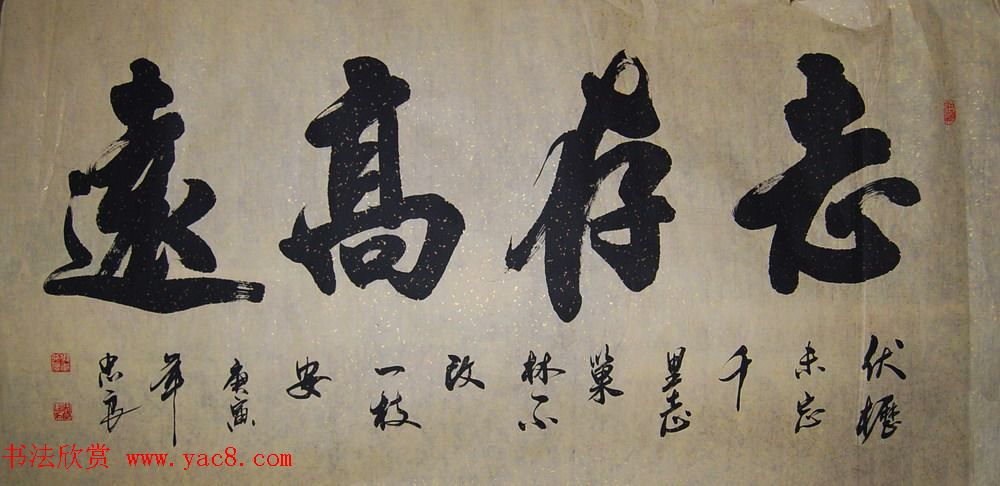 志存高遠
伏櫪
未忘
千
里志
巢
林不
改
一枝
安
庚寅
年
忠
书法欣赏 www.yac8.com